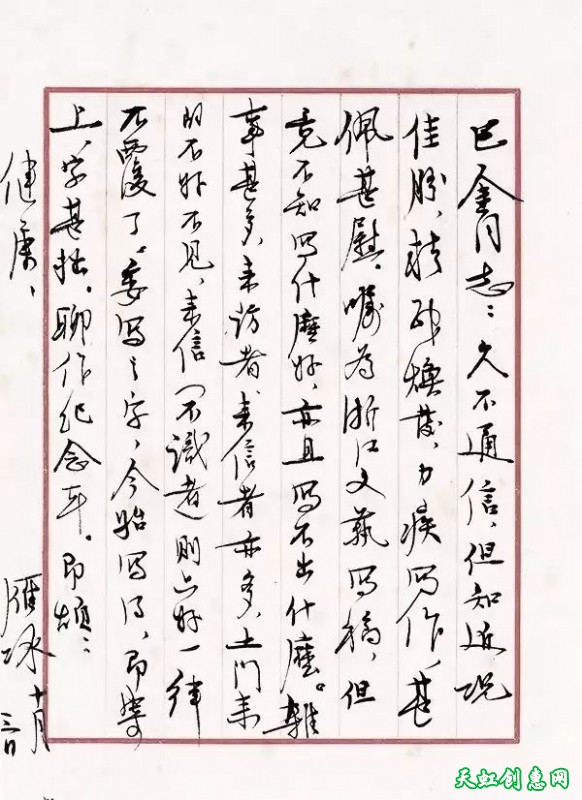 巴金同志：久不通信，但知近况
佳胜，精神焕发，力疾写作，甚
佩甚慰。嘱为浙江文艺写稿，但
竟不知写什麽好，亦且写不出什麽。雜
事甚多，来訪者、来信者亦多，上门来
的不好不见，来信（不識者）則只好一律
不覆了。委写之字，今始写得，即寄
上，字甚拙。聊作纪念耳。即頌：
健康，
雁冰 十月
三日
天虹创惠网